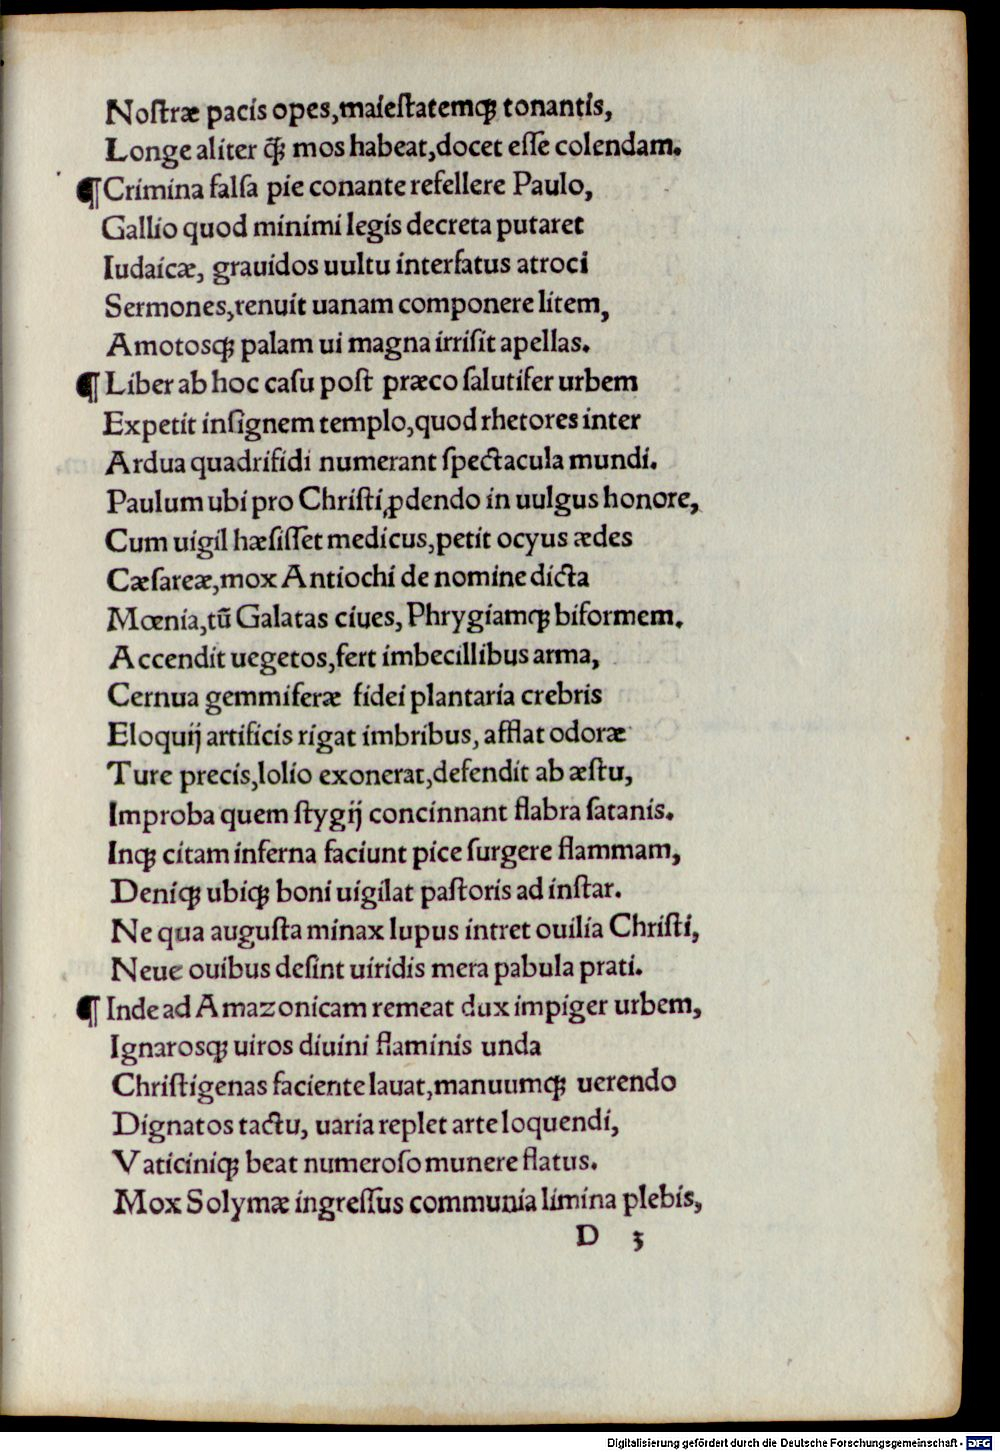 Noſtræ pacis opes,maieſtatemq; tonantis,
Longe aliter q̃; mos habeat,docet eſſe colendam.
¶Crimina falſa pie conante refellere Paulo,
Gallio quod minimi legis decreta putaret
Iudaicæ, grauidos uultu interfatus atroci
Sermones,renuit uanam componere litem,
Amotosq; palam ui magna irriſit apellas.
¶Liber ab hoc caſu poſt præco ſalutifer urbem
Expetit inſignem templo,quod rhetores inter
Ardua quadrifidi numerant ſpectacula mundi.
Paulum ubi pro Chriſti ꝓdendo in uulgus honore,
Cum uigil hæſiſſet medicus,petit ocyus ædes
Cæſareæ,mox Antiochi de nomine dicta
Mœnia,tū Galatas ciues, Phrygiamq; biformem.
Accendit uegetos,fert imbecillibus arma,
Cernua gemmiferæ fidei plantaria crebris
Eloquij artificis rigat imbribus, afflat odoræ
Ture precis,lolio exonerat,defendit ab æſtu,
Improba quem ſtygij concinnant flabra ſatanis.
Inq; citam inferna faciunt pice ſurgere flammam,
Deniq; ubiq; boni uigilat paſtoris ad inſtar.
Ne qua auguſta minax lupus intret ouilia Chriſti,
Neue ouibus deſint uiridis mera pabula prati.
¶ Inde ad Amazonicam remeat dux impiger urbem,
Ignarosq; uiros diuini flaminis unda
Chriſtigenas faciente lauat,manuumq; uerendo
Dignatos tactu, uaria replet arte loquendi,
Vaticiniq; beat numeroſo munere flatus.
Mox Solymæ ingreſſus communia limina plebis,
D 3
Digitalisierung gefördert durch die Deutsche Forschungsgemeinschaft - DFG